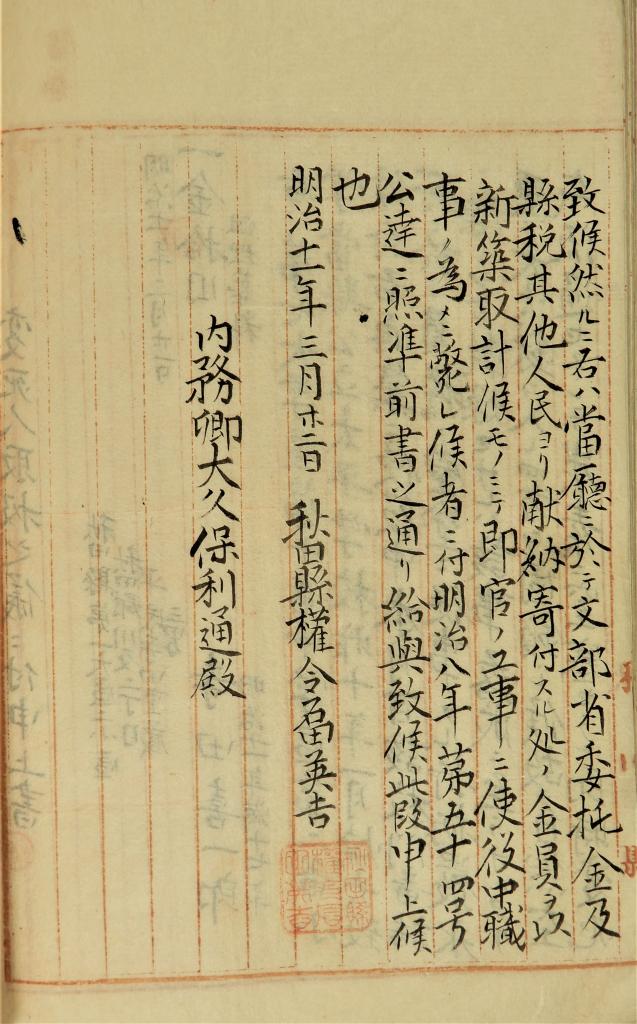 致候然ルニ右ハ當廳ニ於テ文部省委托金及
縣税其他人民ヨリ献納寄付スル処ノ金員ヲ以
新築取計候モノニテ即官ノ工事ニ使役中職
事ノ為メニ斃レ候者ニ付明治八年第五十四号
公達ニ照準前書之通リ給與致候此段申上候
也
明治十一年三月廿二日 秋田縣權令石田英吉
内務卿大久保利通殿